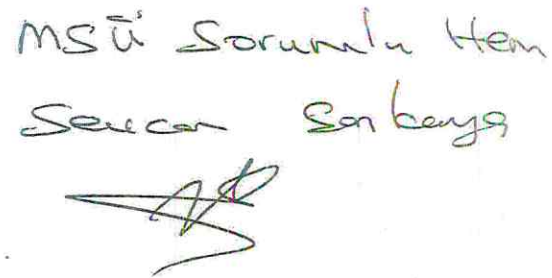 MSÜ Sorumlu Hem
Sevcan Sarıkaya